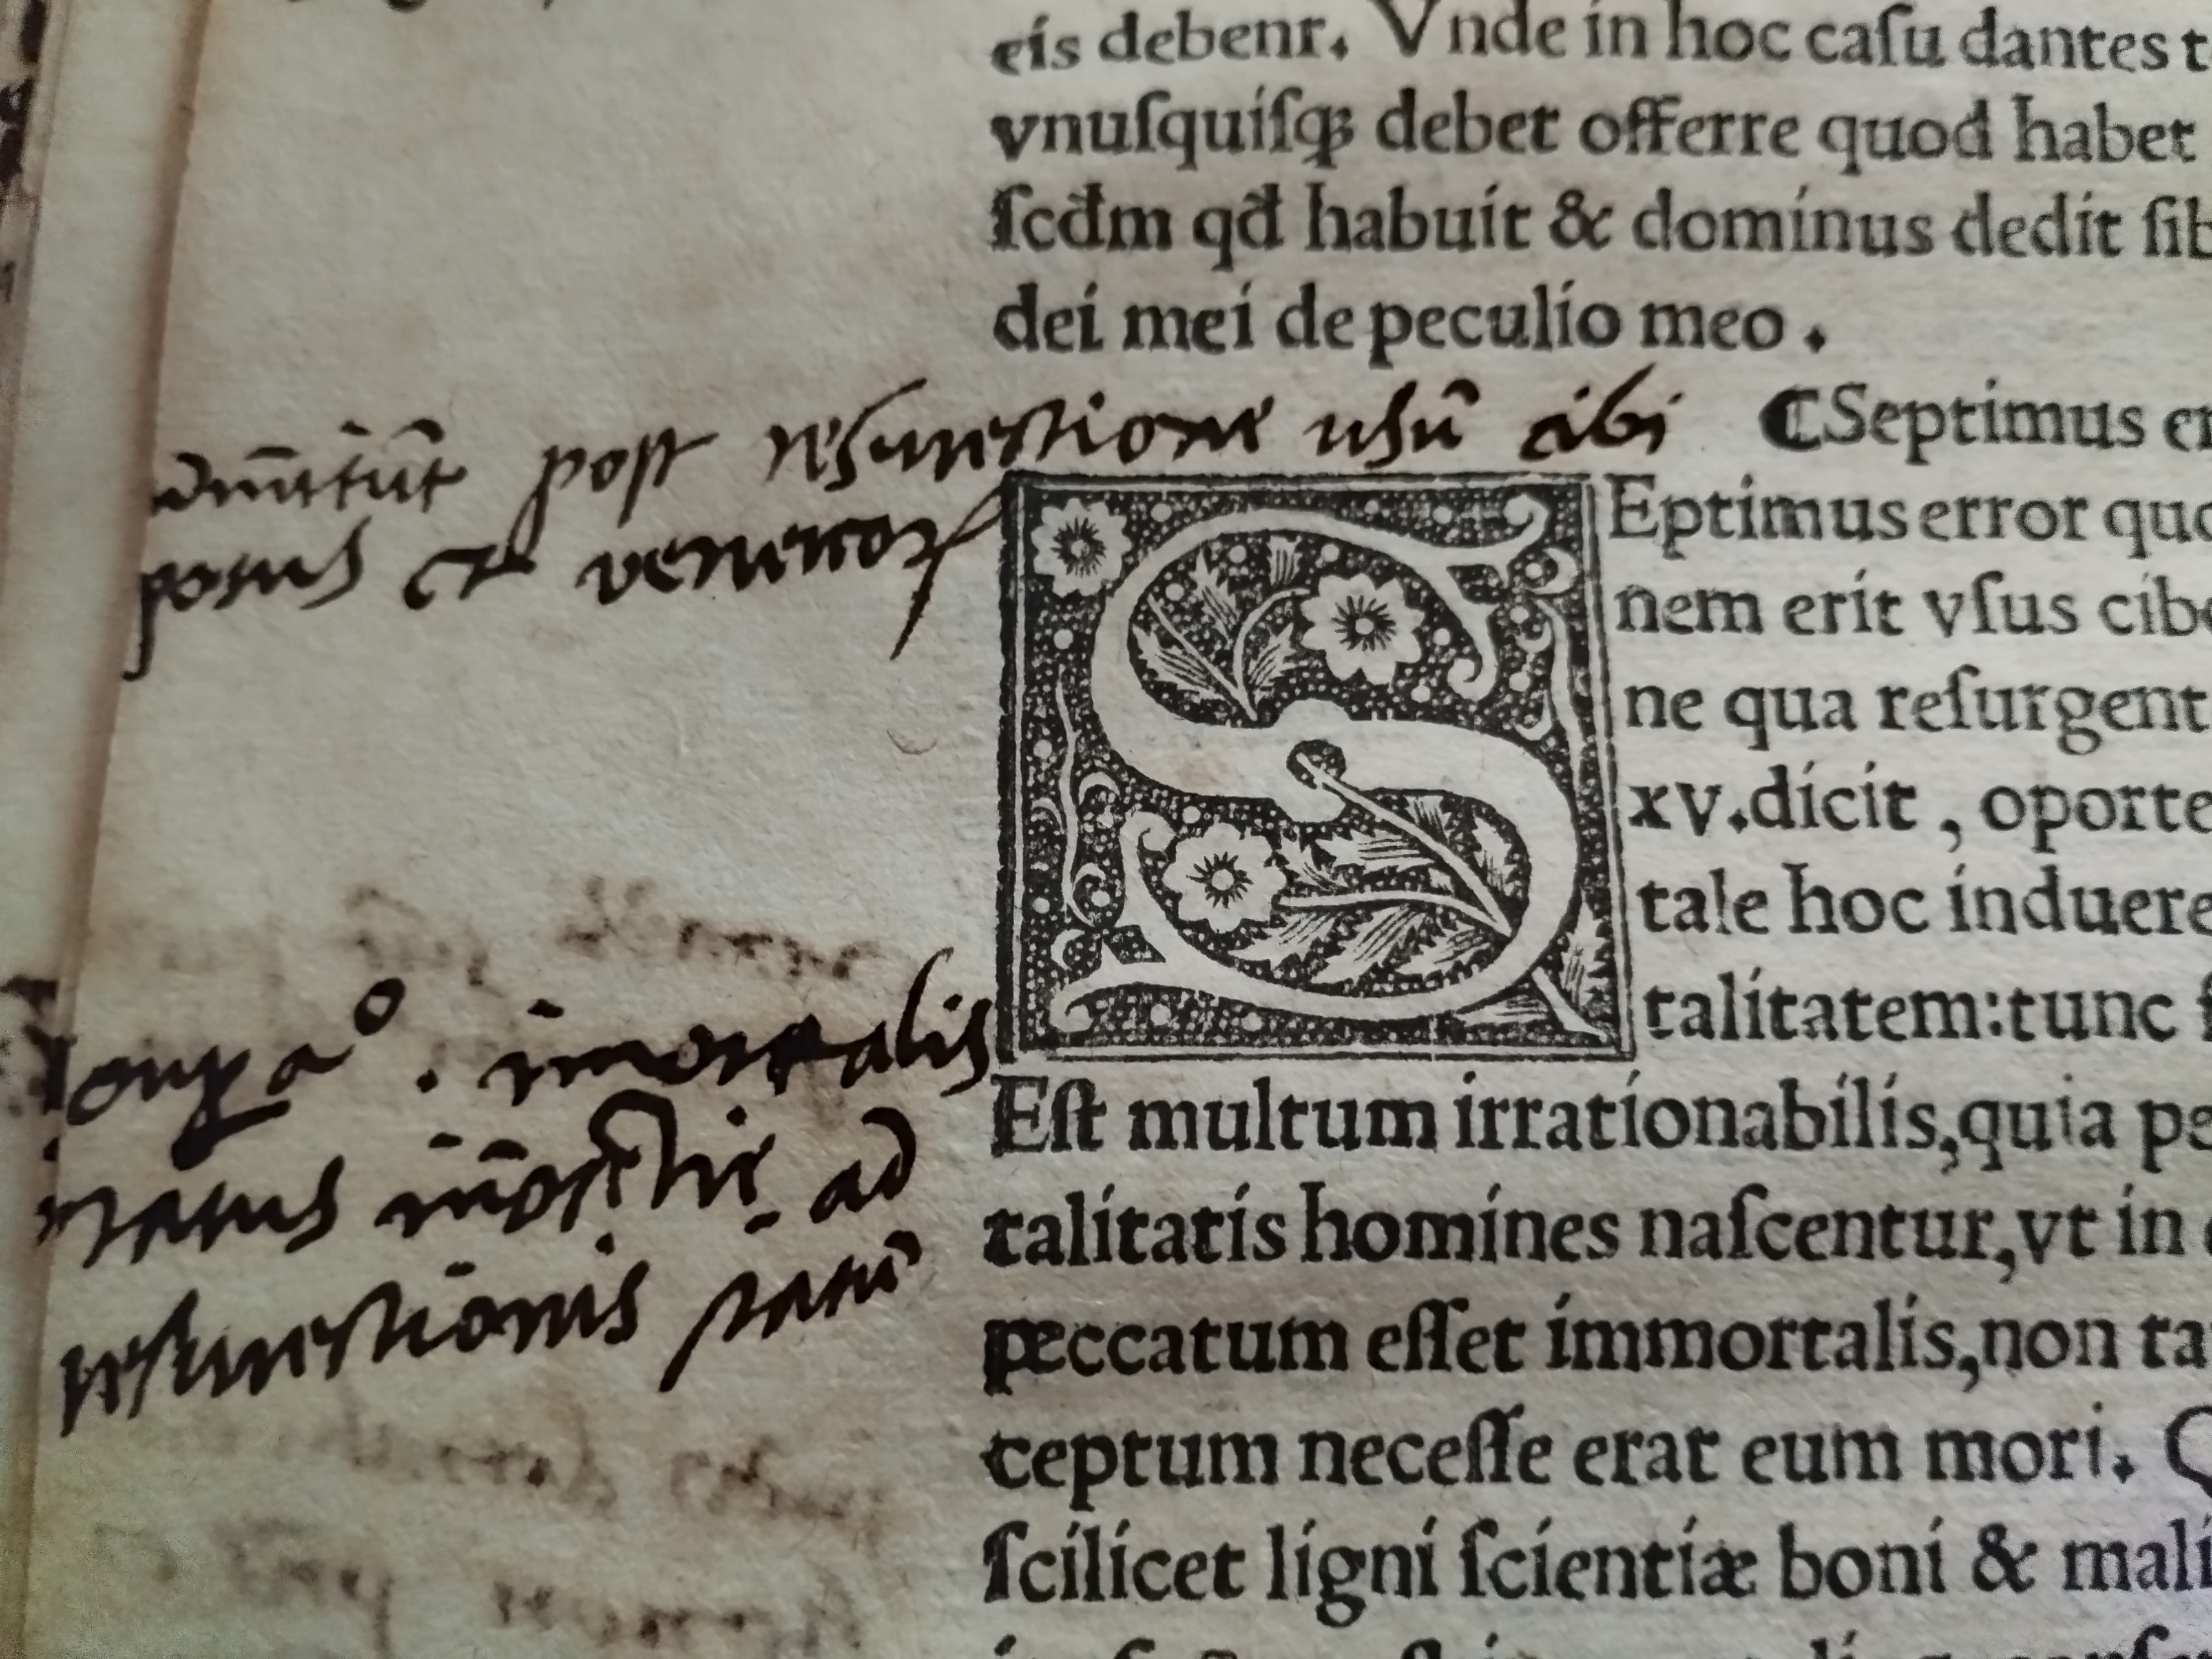 eis debent. Vnde in hoc caſu dantes t
vnuſquiſqꝫ debet offerre quod habet
ſcđm qđ habuit & dominus dedit ſib
dei mei de peculio meo.
post resurrectionē usū cibi
potus et venereoꝝ
¶Septimus er
SEptimus error quo
nem erit vſus cibo
ne qua reſurgent
xv.dicit, oporte
tale hoc induere
talitatem:tunc ſ
Eſt multum irrationabilis,quia pe
talitatis homines naſcentur,vt in
peccatum eſſet immortalis,non ta
ceptum neceſſe erat eum mori.
ſcilicet ligni ſcientiæ boni & mali
imortalis
ad
resurrectionis statū